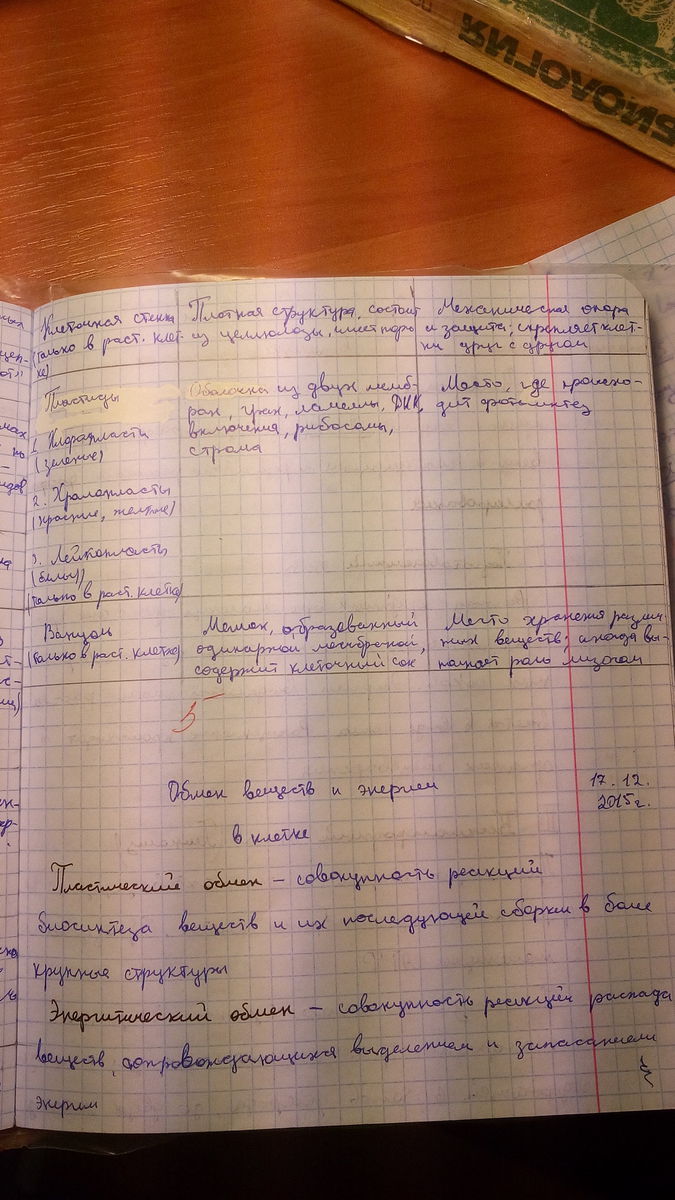 БИОЛОГИЯ
Клеточная стенка
(только в раст. клет-
ке)
Плотная структура, состоит
из целлюлозы, имеет поры
Механическая опора
и защита; скрепляет клет-
ки друг с другом
Пластиды
1. Хлоропласты
(зеленые)
2. Хромопласты
(красные, желтые)
3. Лейкопласты
(белые)
(только в раст. клетке)
Оболочка из двух мемб-
ран, гран, ламеллы, ДНК,
включения, рибосомы,
строма
Место, где происхо-
дит фотосинтез
Вакуоль
(только в раст. клетке)
Мешок, образованный
одинарной мембраной,
содержит клеточный сок
Место хранения различ
ных веществ; иногда вы-
полняет роль лизосом
5-
Обмен веществ и энергии
в клетке
17. 12.
2015 г.
Пластический обмен – совокупность реакций
биосинтеза веществ и их последующей сборки в более
крупные структуры
Энергитический обмен – совокупность реакций распада
веществ, сопровождающихся выделением и запасанием
энергии